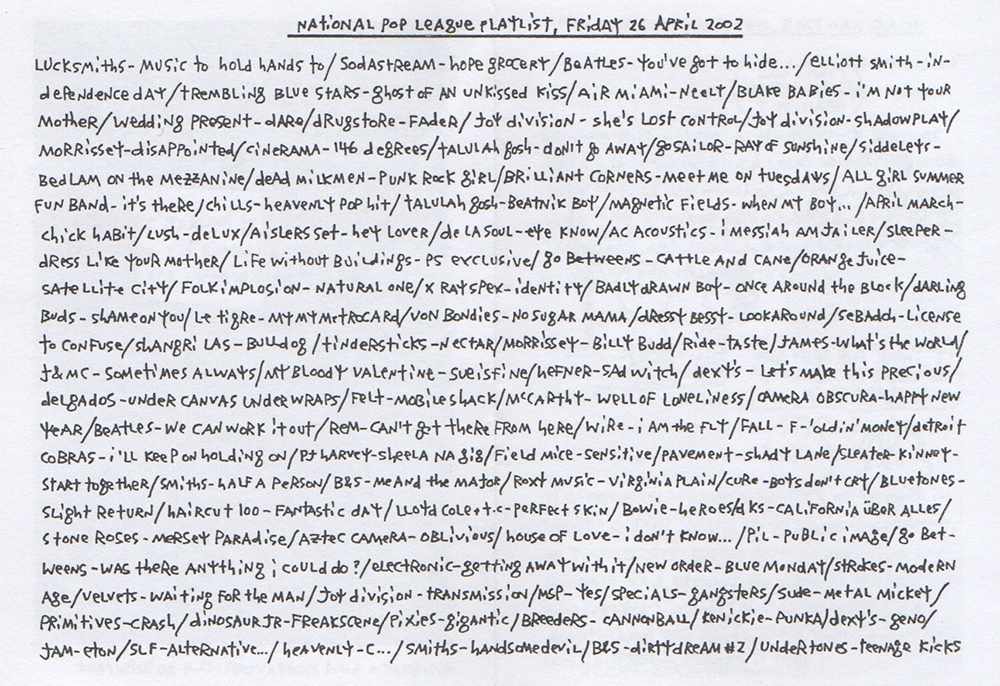 National Pop League Playlist, Friday 26 April 2002
Lucksmiths - Music to hold hands to/Sodastream - hope grocery/Beatles - You've got to hide.../Elliott Smith - in-
dependence day/Trembling Blue Stars - ghost of an unkissed kiss/Air Miami - Neely/Blake Babies - i'm not your
mother/Wedding Present - dare/drugstore - Fader/Joy division - she's lost control/Joy division - shadowplay/
Morrissey - disappointed/Cinerama - 146 degrees/Talulah gosh - don't go away/go sailor - Ray of sunshine/Siddeleys -
Bedlam on the mezzanine/dead milkmen - Punk Rock girl/Brilliant Corners - meet me on tuesdays/All girl summer
fun band - it's there/chills - heavenly pop hit/talulah gosh - Beatnik Boy/Magnetic Fields - when my boy... /April March -
chick habit/Lush - deluxe/Aislers set - hey lover/de la soul - eye know/AC Acoustics - i messiah am jailer/Sleeper -
dress like your mother/Life without buildings - PS exclusive/go betweens - cattle and cane/orange juice -
satellite city/Folk implosion - natural one/X Ray Spex - identity/Badly drawn boy - once around the block/darling
buds - shame on you/Le tigre - my my metrocard/Von Bondies - no sugar mama/dressy bessy - lookaround/sebadoh - license
to confuse/shangri las - Bulldog/tindersticks - nectar/Morrissey - Billy Budd/Ride - taste/James - what's the world/
J&MC - sometimes always/My bloody valentine - sueisfine/hefner - sad witch/dexy's - let's make this precious/
delgados - under canvas under wraps/Felt - mobile shack/McCarthy - well of loneliness/camera obscura - happy new
year/Beatles - we can work it out/REM - can't get there from here/Wire - i am the fly/Fall - F-'oldin' money/detroit
cobras - i'll keep on holding on/PJ harvey - sheela na gig/Field mice - sensitive/pavement - shady lane/Sleater-Kinney -
start together/Smiths - half a person/B&S - me and the major/Roxy music - virginia plain/cure - boys don't cry/bluetones -
slight return/haircut 100 - fantastic day/Lloyd cole + t.c - perfect skin/Bowie - heroes/dks - california über alles/
stone roses - mersey paradise/Aztec camera - oblivious/house of love - i don't know... /PiL - public image/go bet-
weens - was there anything i could do?/electronic - getting away with it/new order - blue monday/strokes - modern
age/velvets - waiting for the man/Joy division - transmission/MSP - yes/specials - gangsters/Suede - metal mickey/
primitives - crash/dinosaur jr - freakscene/pixies - gigantic/breeders - cannonball/kenickie - punka/dexy's - geno/
jam - eton/SLF - alternative.../heavenly - c.../smiths - handsome devil/B&S - dirty dream #2/undertones - teenage kicks